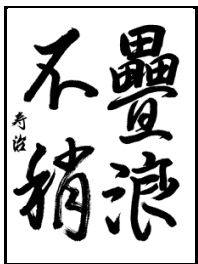 疊浪
不稍
寿治